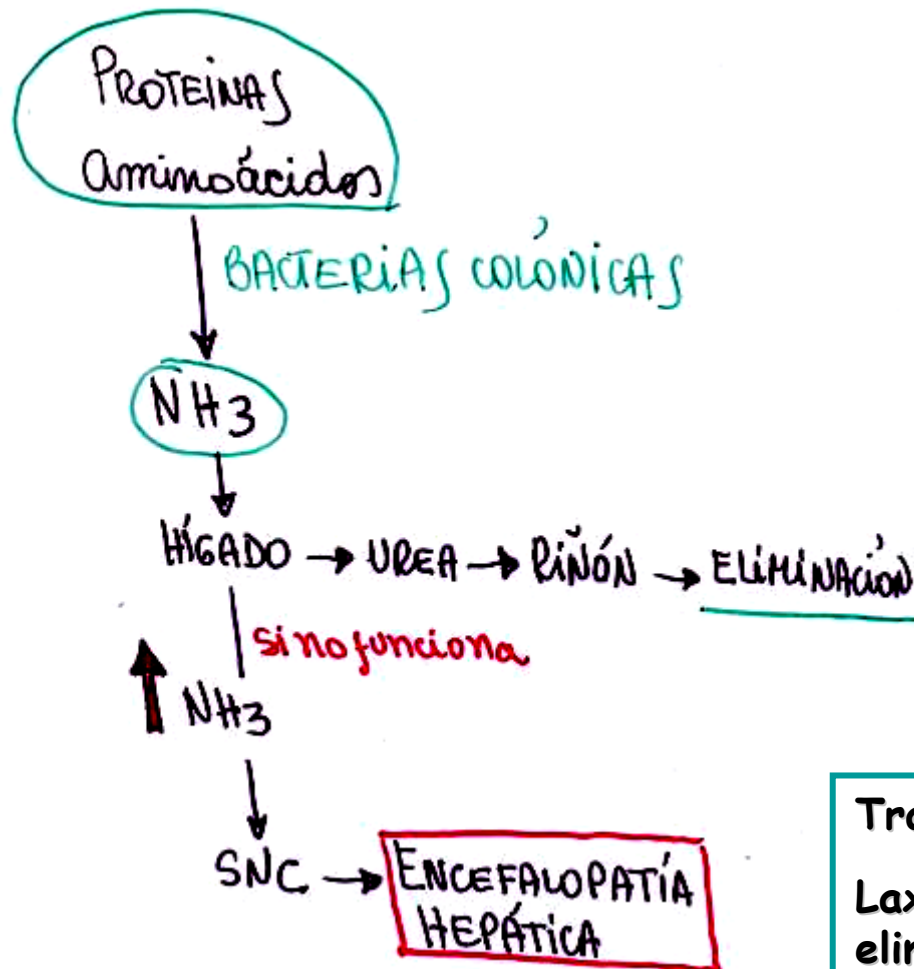 PROTEINAS
Aminoácidos
BACTERIAS COLÓNICAS
NH3
HÍGADO → UREA → RIÑÓN → ELIMINACIÓN
si no funciona
↑ NH3
SNC → ENCEFALOPATÍA
HEPÁTICA